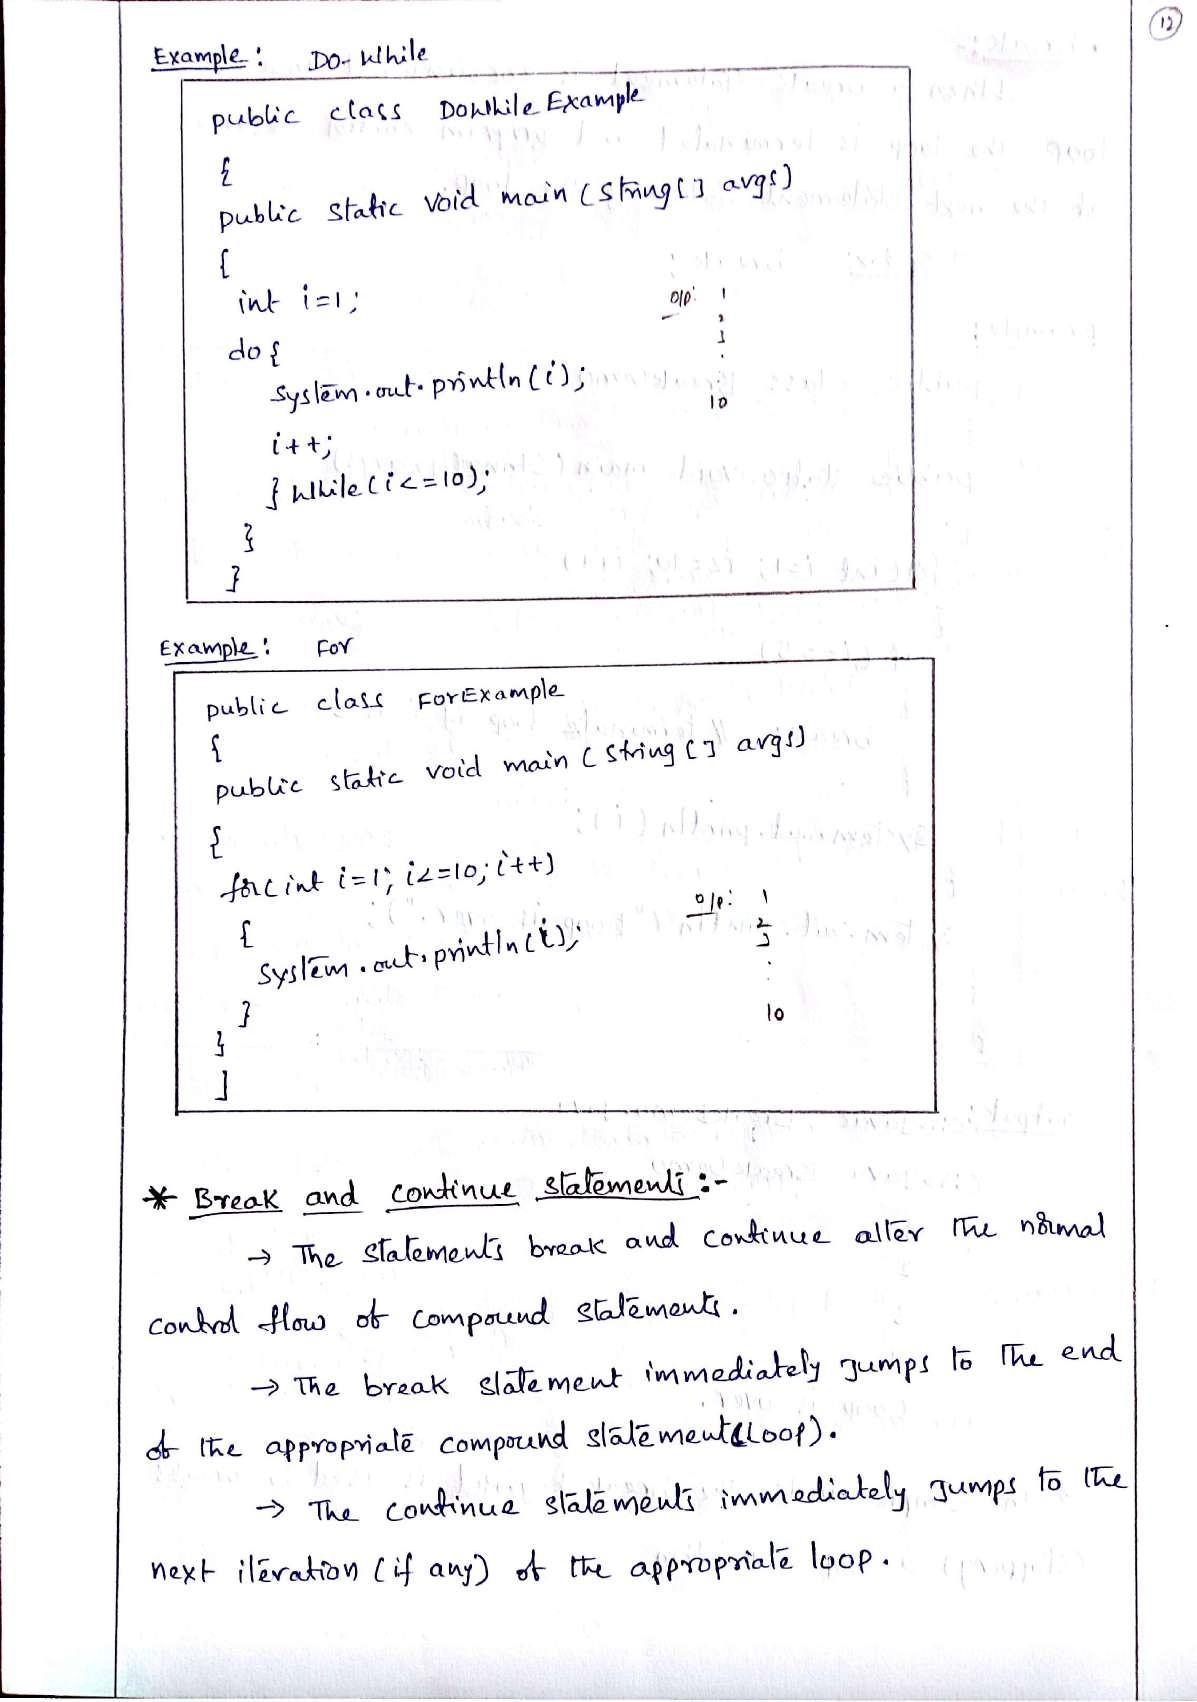 12
Example : Do-While
public class DoWhile Example
{
public static void main (String[] args)
{
int i=1;
o/p: 1
2
3
.
10
do {
System.out.println(i);
i++;
} while(i<=10);
}
}
Example : For
public class ForExample
{
public static void main (String [] args)
{
for(int i=1; i<=10; i++)
o/p: 1
2
3
.
.
10
{
System.out.println(i);
}
}
]
* Break and continue statements :-
→ The statements break and continue alter the normal
control flow of compound statements.
→ The break statement immediately jumps to the end
of the appropriate compound statement(Loop).
→ The continue statements immediately jumps to the
next iteration (if any) of the appropriate loop.